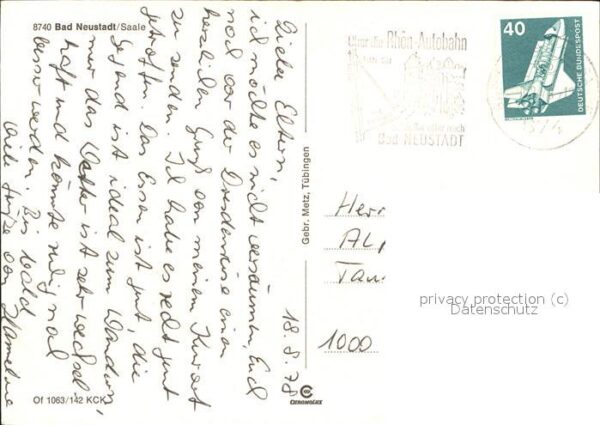 8740 Bad Neustadt/Saale
18.8.78
Liebe Eltern,
ich möchte es nicht versäumen, Euch
noch vor der Dresdenreise einen
herzlichen Gruß von meinem Kurort
zu senden. Ich habe es recht gut
getroffen. Das Essen ist gut, die
Gegend ist ideal zum Wandern,
nur das Wetter ist sehr wechsel-
haft und könnte ruhig mal
besser werden. Bis bald
viele Grüße von
Of 1063/142 KCK
Gebr. Metz, Tübingen
CHROMOLUX
Über die Rhön-Autobahn
Bad NEUSTADT
40
DEUTSCHE BUNDESPOST
Herr
Al
Tau
1000
privacy protection (c)
Datenschutz